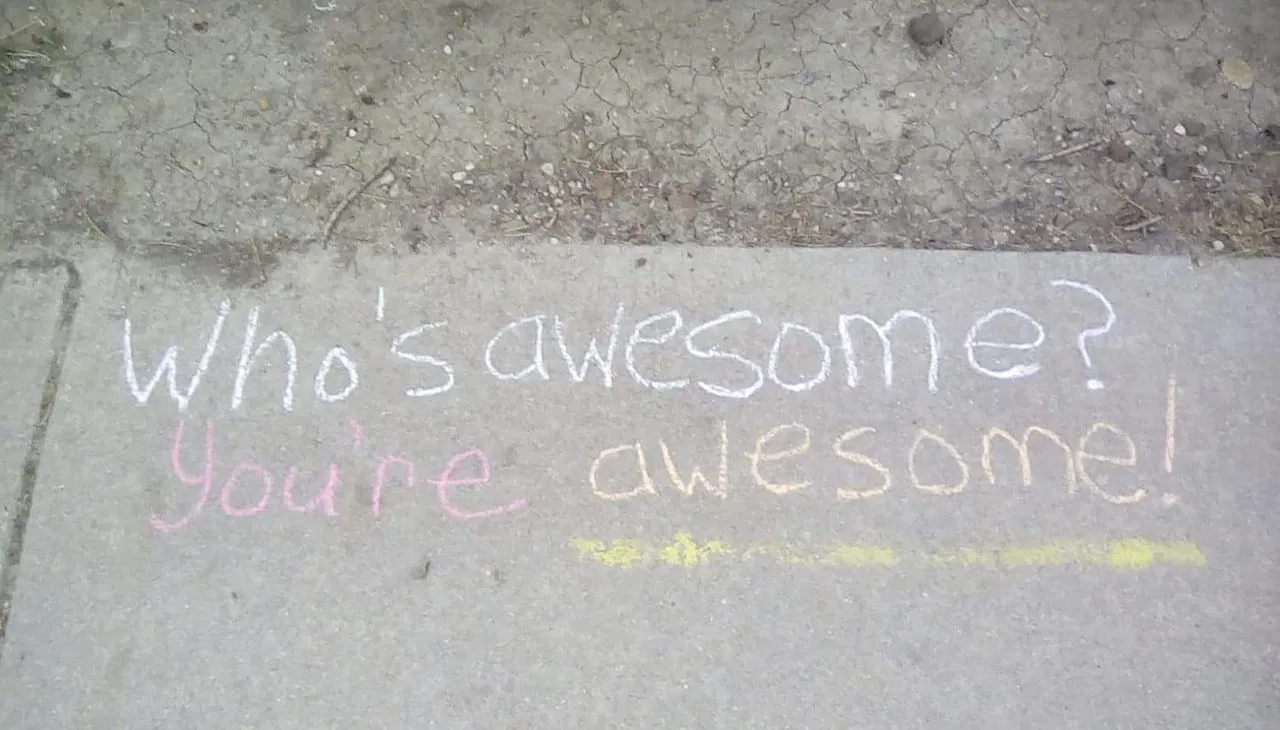 Who's awesome?
You're awesome!